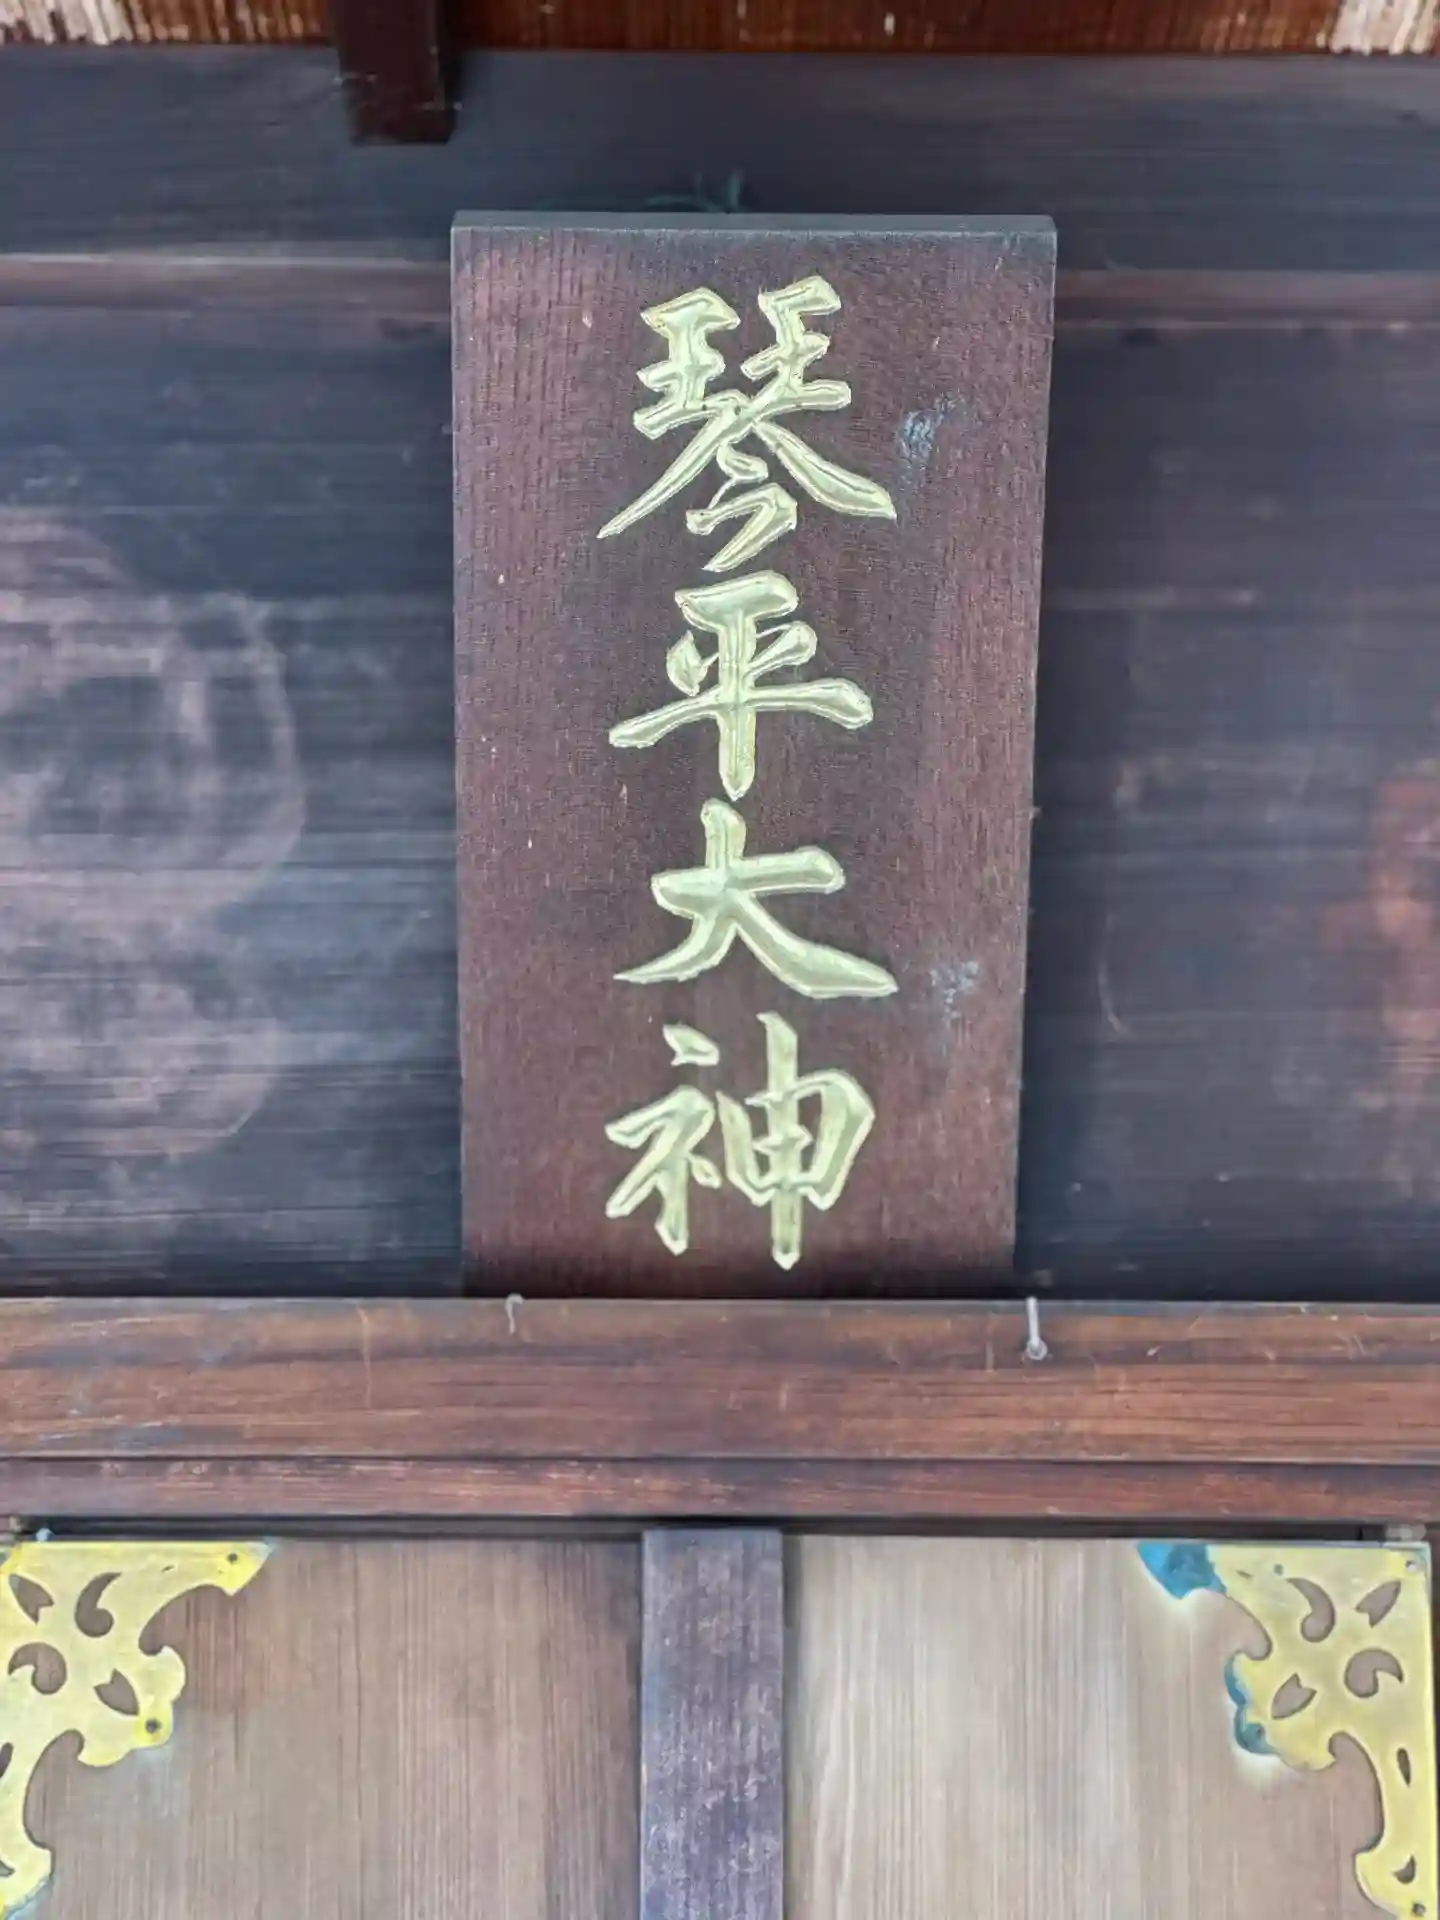 琴平大神